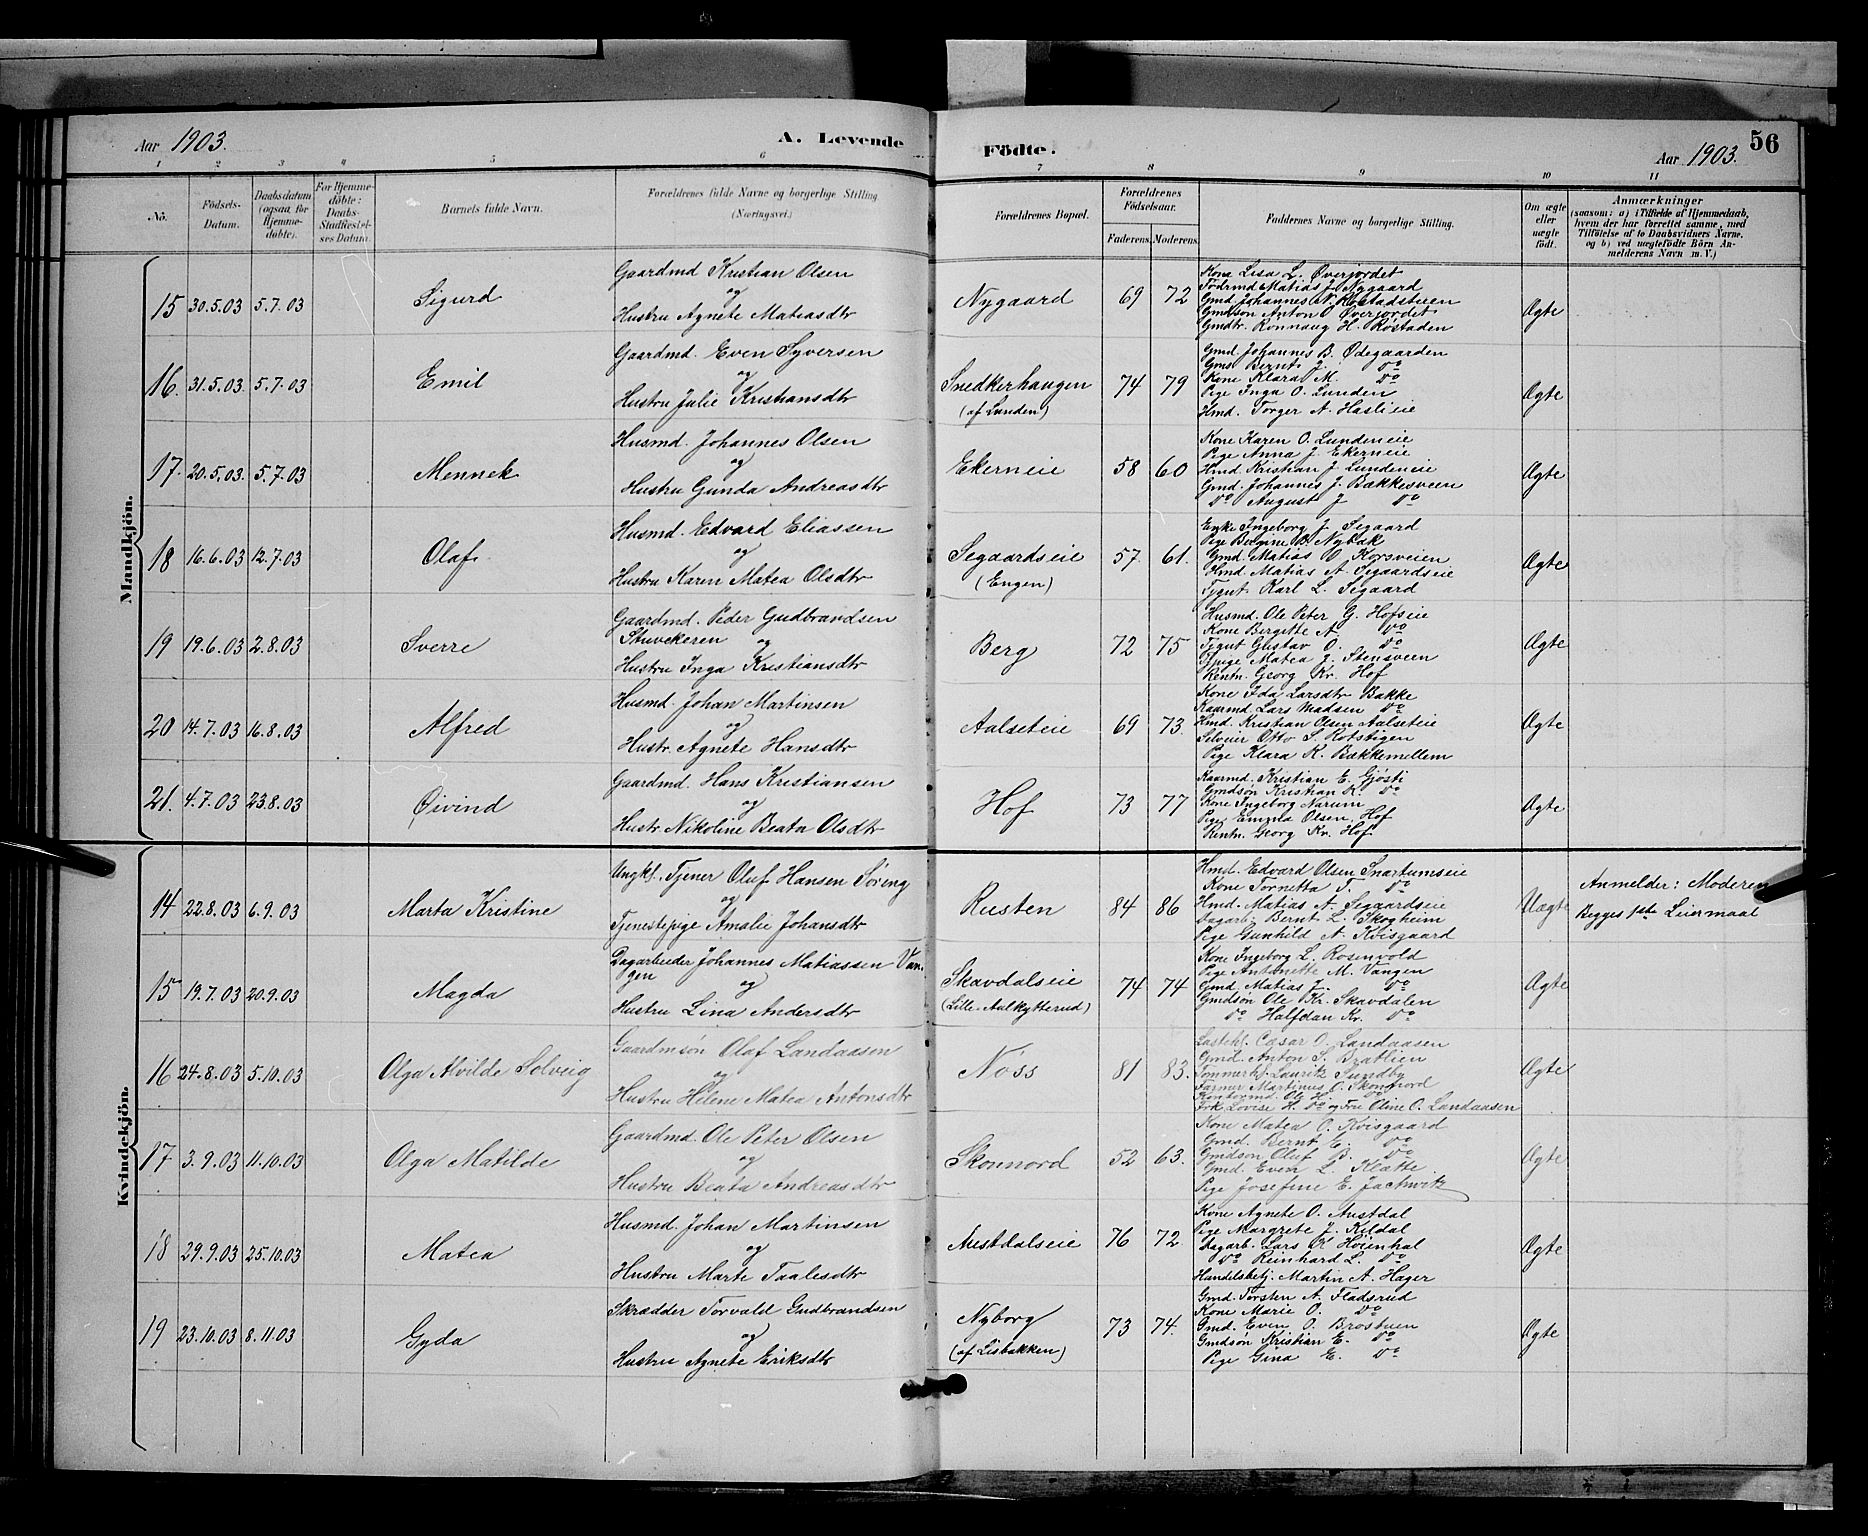 Aar 1903. A. Levende Födte. Aar 1903. 56
1 2 3 4 5 6 7 8 9 10 11
No. Födsels-Datum. Daabsdatum (ogsaa for Hjemme-döbte). For Hjemme-döbte: Daabs-Stadfæstel-ses Datum. Barnets fulde Navn. Forældrenes fulde Navne og borgerlige Stilling (Næringsvei.) Forældrenes Bopæl. Forældrenes Födselsaar. Faderens. Moderens. Faddernes Navne og borgerlige Stilling. Om ægte eller uægte födt. Anmærkninger (saasom: a) i Tilfælde af Hjemmedaab, hvem der har forrettet samme, med Tilföielse af to Daabsvidners Navne, og b) ved uægtefödte Börn An-melderens Navn m. V.)
Mandkjön.
15 30.5.03 5.7.03 Sigurd
Gaardmd Kristian Olsen
og
Hustru Agnete Matiasdtr
Nygaard 69 72
Kone Lisa L. Øverjordet
Födrmd Matias J. Nygaard
Gmd. Johannes N. Røstadstuen
Gmdsøn Anton O Øverjordet
Gmdtr. Rønnaug H. Røstaden
Ægte
16. 31.5.03. 5.7.03 Emil
Gaardmd. Even Syversen
og
Hustru Julie Kristiansdtr
Snedkerhaugen
(af Lunden)
74 79
Gmd. Johannes B. Ødegaarden
Gms Bernt J. Do
Kone Klara M. Do
Pige Inga O. Lunden
Hmd. Torger A. Haslieie
Ægte
17. 20.5.03. 5.7.03 Mennek
Husmd. Johannes Olsen
og
Hustru Gunda Andreasdtr
Ekerneie 58 60
Kone Karen O. Lundeneie
Pige Anna J. Ekerneie
Hmd. Kristian J. Lundeneie
Gmd. Johannes J. Bækkesveen
Do August J Do
Ægte
18 16.6.03 12.7.03 Olaf
Husmd. Edvard Eliassen
og
Hustru Karen Matea Olsdtr
Segaardseie
(Engen)
57. 61.
Enke Ingeborg J. Segaard
Pige Bergine B. Nybak
Gmd. Matias O. Korsveien
Hmd. Matias A. Segaardseie
Tjgut. Karl L. Segaard
Ægte
19 19.6.03 2.8.03 Sverre
Gaardmd. Peder Gudbrandsen
Stuvekeren og
Hustru Inga Kristiansdtr
Berg 72 75
Husmd. Ole Peter G. Hofseie
Kone Bergitte A Do
Tjgut Gustav O. Do
Tjpige Matea J. Stensveen
Rentn. Georg Kr. Hof
Ægte
20 14.7.03 16.8.03 Alfred
Husmd. Johan Martinsen
og
Hustr. Agnete Hansdtr
Aalseteie 69 73.
Kone Ida Larsdtr Bakke
Kaarmd. Lars Madsen Do
Hmd. Kristian Olsen Aalseteie
Selveier Otto S. Rotstigen
Pige Klara K. Bækkemellem
Ægte
21. 4.7.03 23.8.03 Øivind
Gaardmd. Hans Kristiansen
og
Hustr. Nikoline Beata Olsdtr
Hof 73 77
Kaarmd. Kristian E. Gjøsti
Gmdsøn Kristian K. Do
Kone Ingeborg Narum
Pige Emma Olsen Hof
Rentn. Georg Kr. Hof
Ægte
Kvindekjön.
14 22.8.03 6.9.03 Marta Kristine
Ungkl. Tjener Oluf Hansen Söreng
og
Tjenestepige Amalie Johansdtr
Rusten 84 86
Hmd. Edvard Olsen Snartumseie
Kone Tornetta T. Do
Hmd. Matias A. Segaardseie
Dagarb. Bernt L. Skogheim
Pige Gunhild A. Kvisgaard
Uægte
Anmelder: Moderen
Begges 1ste Leiermaal
15 19.7.03 20.9.03 Magda
Dagarbeider Johannes Matiassen Van-
gen og
Hustru Lina Andersdtr
Skavdalseie
(Lille-Aalkytterud)
74 74
Kone Ingeborg L. Rosenvold
Pige Antonette M. Vangen
Gmd. Matias J. Do
Gmdsøn Ole Kr. Skavdalen
Do Halfdan Kr. Do
Ægte
16 24.8.03 5.10.03 Olga Alvilde Solveig
Gaardmsön Olaf Landaasen
og
Hustru Helene Matea Antonsdtr
Nöss 81 83.
Cæsar O. Landaasen
Gmd. Anton S. Bratlien
Tømmerhl. Laurik Sundby
Farmer Martinus O. Skonnord
Kontormd. Ole H. Do
Frk. Lovise H. Do og Fru Oline O. Landaasen
Ægte
17 3.9.03 11.10.03 Olga Matilde
Gaardmd. Ole Peter Olsen
og
Hustru Beata Andreasdtr
Skonnord 52 63.
Kone Matea O. Kvisgaard
Gmd. Bernt E. Do
Gmdsøn Oluf B. Do
Gmd. Even L. Klætte
Pige Josefine E. Jachwitz
Ægte
18 29.9.03 25.10.03 Matea
Husmd. Johan Martinsen
og
Hustru Marte Taalesdtr
Austdalseie 76 72
Kone Agnete O. Austdal
Pige Margrete J. Kildal
Dagarb. Lars K Høienhal
Do Reinhard L. Do
Handelsbetj. Martin A. Hager
Ægte
19 23.10.03 8.11.03 Gyda
Skrædder Torvald Gudbrandsen
og
Hustru Agnete Eriksdtr
Nyborg
(af Lisbakken)
73 74.
Gmd. Torsten A. Fladsrud
Kone Marie O. Do
Gmd. Even O. Brostuen
Gmdsøn Kristian E. Do
Pige Gina E. Do
Ægte